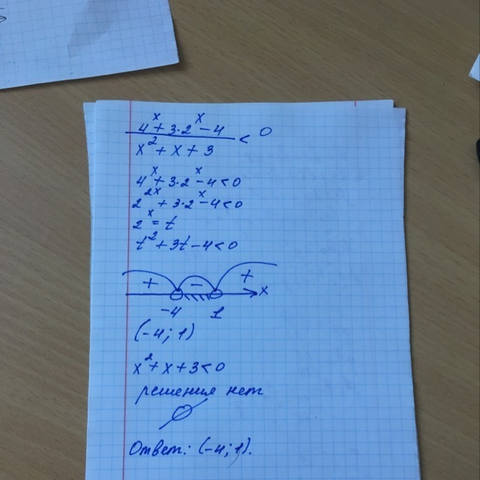 4^x + 3·2^x - 4
/ x² + x + 3 < 0
4^x + 3·2^x - 4 < 0
2^2x + 3·2^x - 4 < 0
2^x = t
t² + 3t - 4 < 0
+ - + x
-4 1
(-4; 1)
x² + x + 3 < 0
решения нет
∅
Ответ: (-4; 1).